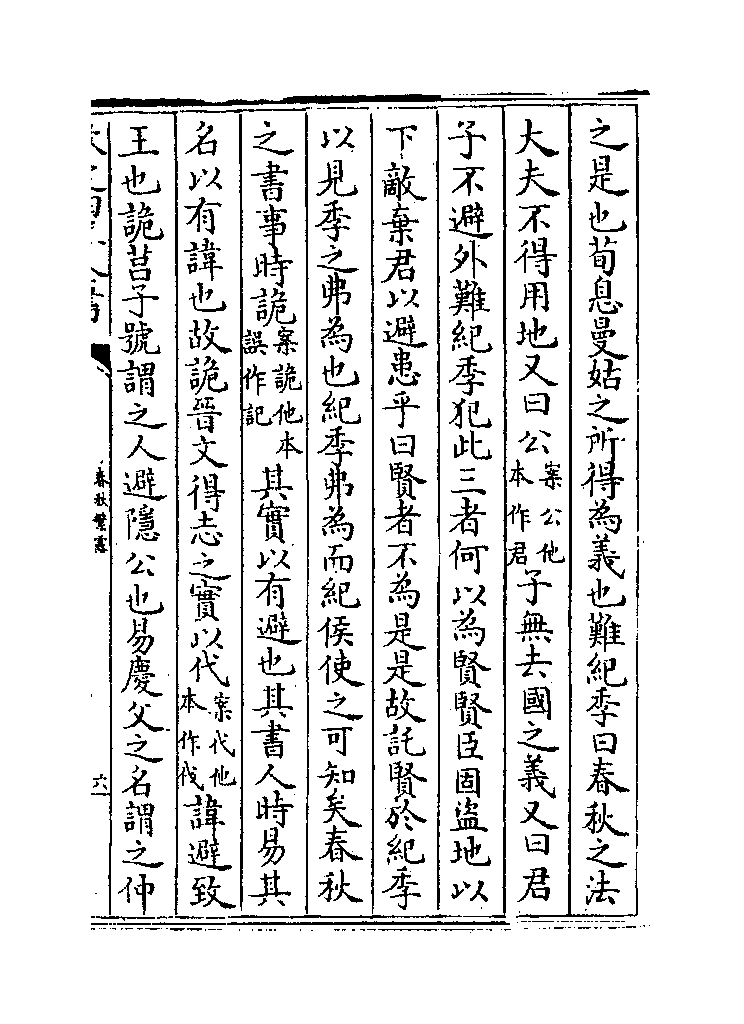 之是也荀息曼姑之所得為義也難紀季曰春秋之法
大夫不得用地又曰公案公他本作君子無去國之義又曰君
子不避外難紀季犯此三者何以為賢賢臣固盜地以
下敵棄君以避患乎曰賢者不為是是故託賢於紀季
以見季之弗為也紀季弗為而紀侯使之可知矣春秋
之書事時詭案詭他本誤作記其實以有避也其書人時易其
名以有諱也故詭晉文得志之實以代案代他本作伐諱避致
王也詭莒子號謂之人避隱公也易慶父之名謂之仲
春秋繁露
六